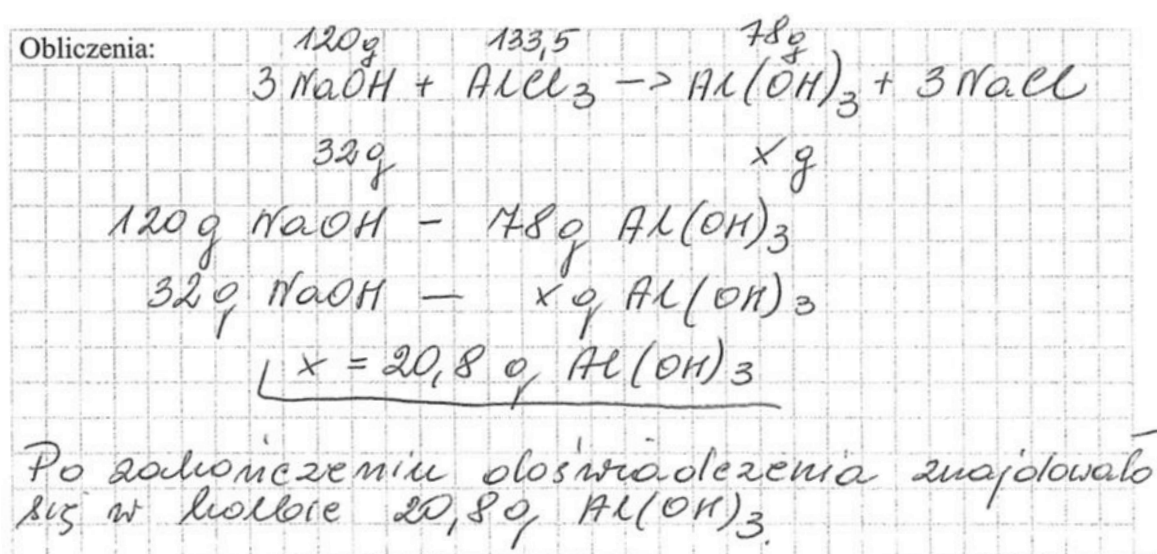 Obliczenia:
120g 133,5 78g
3 NaOH + AlCl₃ -> Al(OH)₃ + 3 NaCl
32g x g
120 g NaOH - 78g Al(OH)₃
32g NaOH — x g Al(OH)₃
x = 20,8 g Al(OH)₃
Po zakończeniu doświadczenia znajdowało
się w kolbie 20,8g Al(OH)₃.